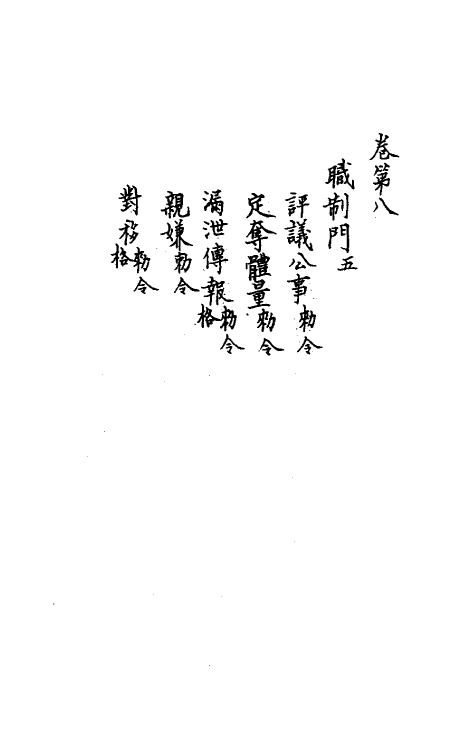 卷第八
職制門五
評議公事勑令
定奪體量勑令
漏泄傳報勑令格
親嫌勑令
對移勑令格